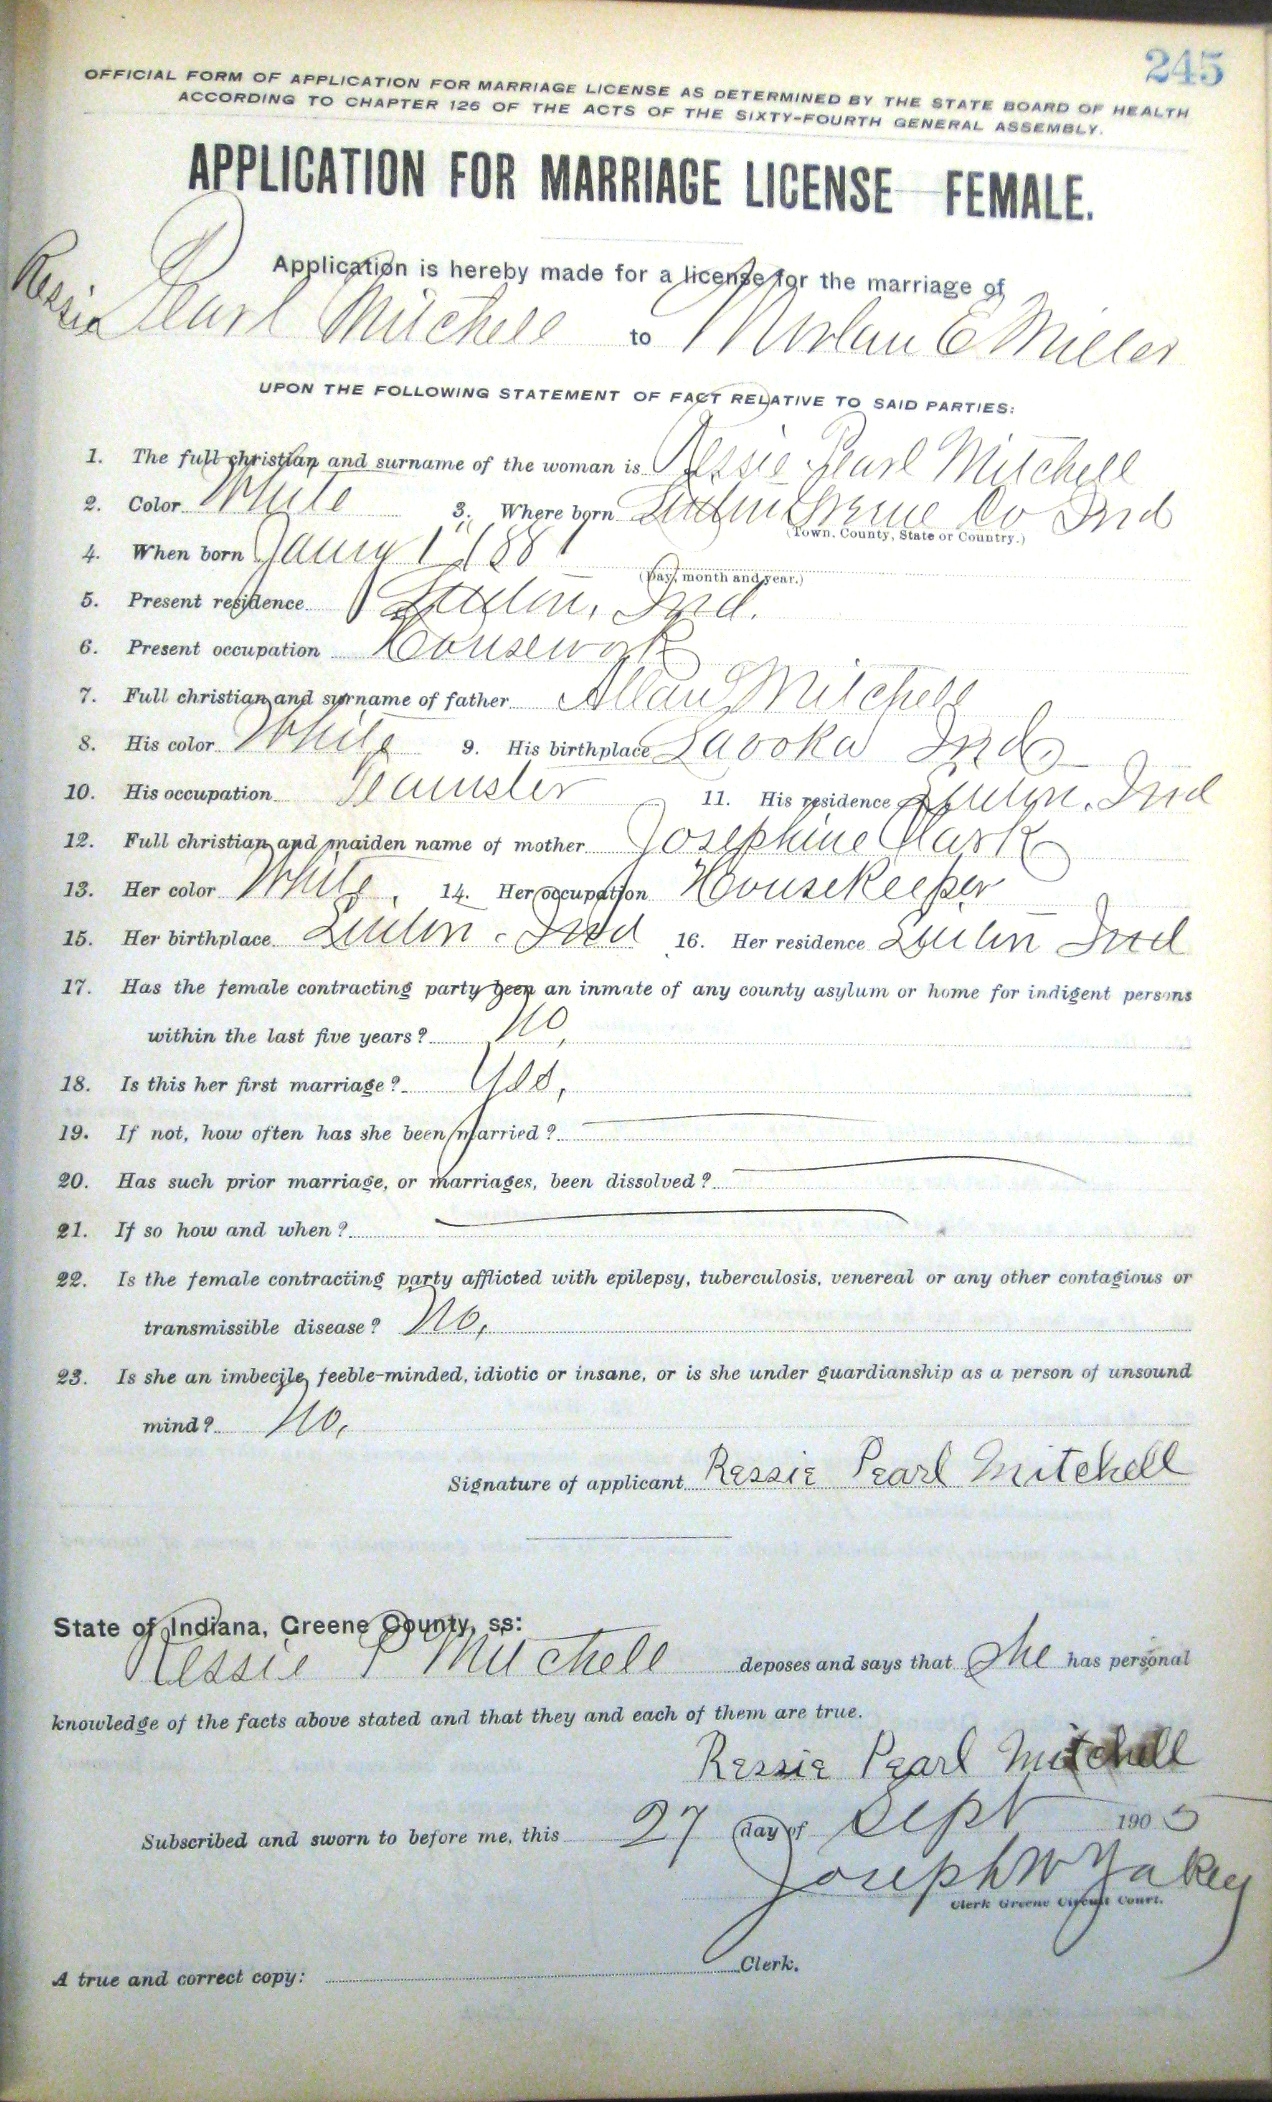 245
OFFICIAL FORM OF APPLICATION FOR MARRIAGE LICENSE AS DETERMINED BY THE STATE BOARD OF HEALTH
ACCORDING TO CHAPTER 126 OF THE ACTS OF THE SIXTY-FOURTH GENERAL ASSEMBLY.
APPLICATION FOR MARRIAGE LICENSE FEMALE.
Application is hereby made for a license for the marriage of
Ressie Pearl Mitchell to E Miller
UPON THE FOLLOWING STATEMENT OF FACT RELATIVE TO SAID PARTIES:
1. The full christian and surname of the woman is Ressie Pearl Mitchell
2. Color White 3. Where born Linton Greene Co Ind
(Town, County, State or Country.)
4. When born January 1" 188
(Day, month and year.)
5. Present residence Linton, Ind.
6. Present occupation Housework
7. Full christian and surname of father Allan Mitchell
8. His color White 9. His birthplace Ind
10. His occupation Teamster 11. His residence Linton, Ind
12. Full christian and maiden name of mother Josephine Clark
13. Her color White. 14. Her occupation Housekeeper
15. Her birthplace Linton. Ind 16. Her residence Linton Ind
17. Has the female contracting party been an inmate of any county asylum or home for indigent persons
within the last five years? No,
18. Is this her first marriage? Yes,
19. If not, how often has she been married?
20. Has such prior marriage, or marriages, been dissolved?
21. If so how and when?
22. Is the female contracting party afflicted with epilepsy, tuberculosis, venereal or any other contagious or
transmissible disease? No,
23. Is she an imbecile, feeble-minded, idiotic or insane, or is she under guardianship as a person of unsound
mind? No,
Signature of applicant Ressie Pearl Mitchell
State of Indiana, Greene County, ss:
Ressie P Mitchell deposes and says that She has personal
knowledge of the facts above stated and that they and each of them are true.
Ressie Pearl Mitchell
Subscribed and sworn to before me, this 27 day of Sept 1905
Joseph W Yakey
Clerk Greene Circuit Court.
A true and correct copy: Clerk.